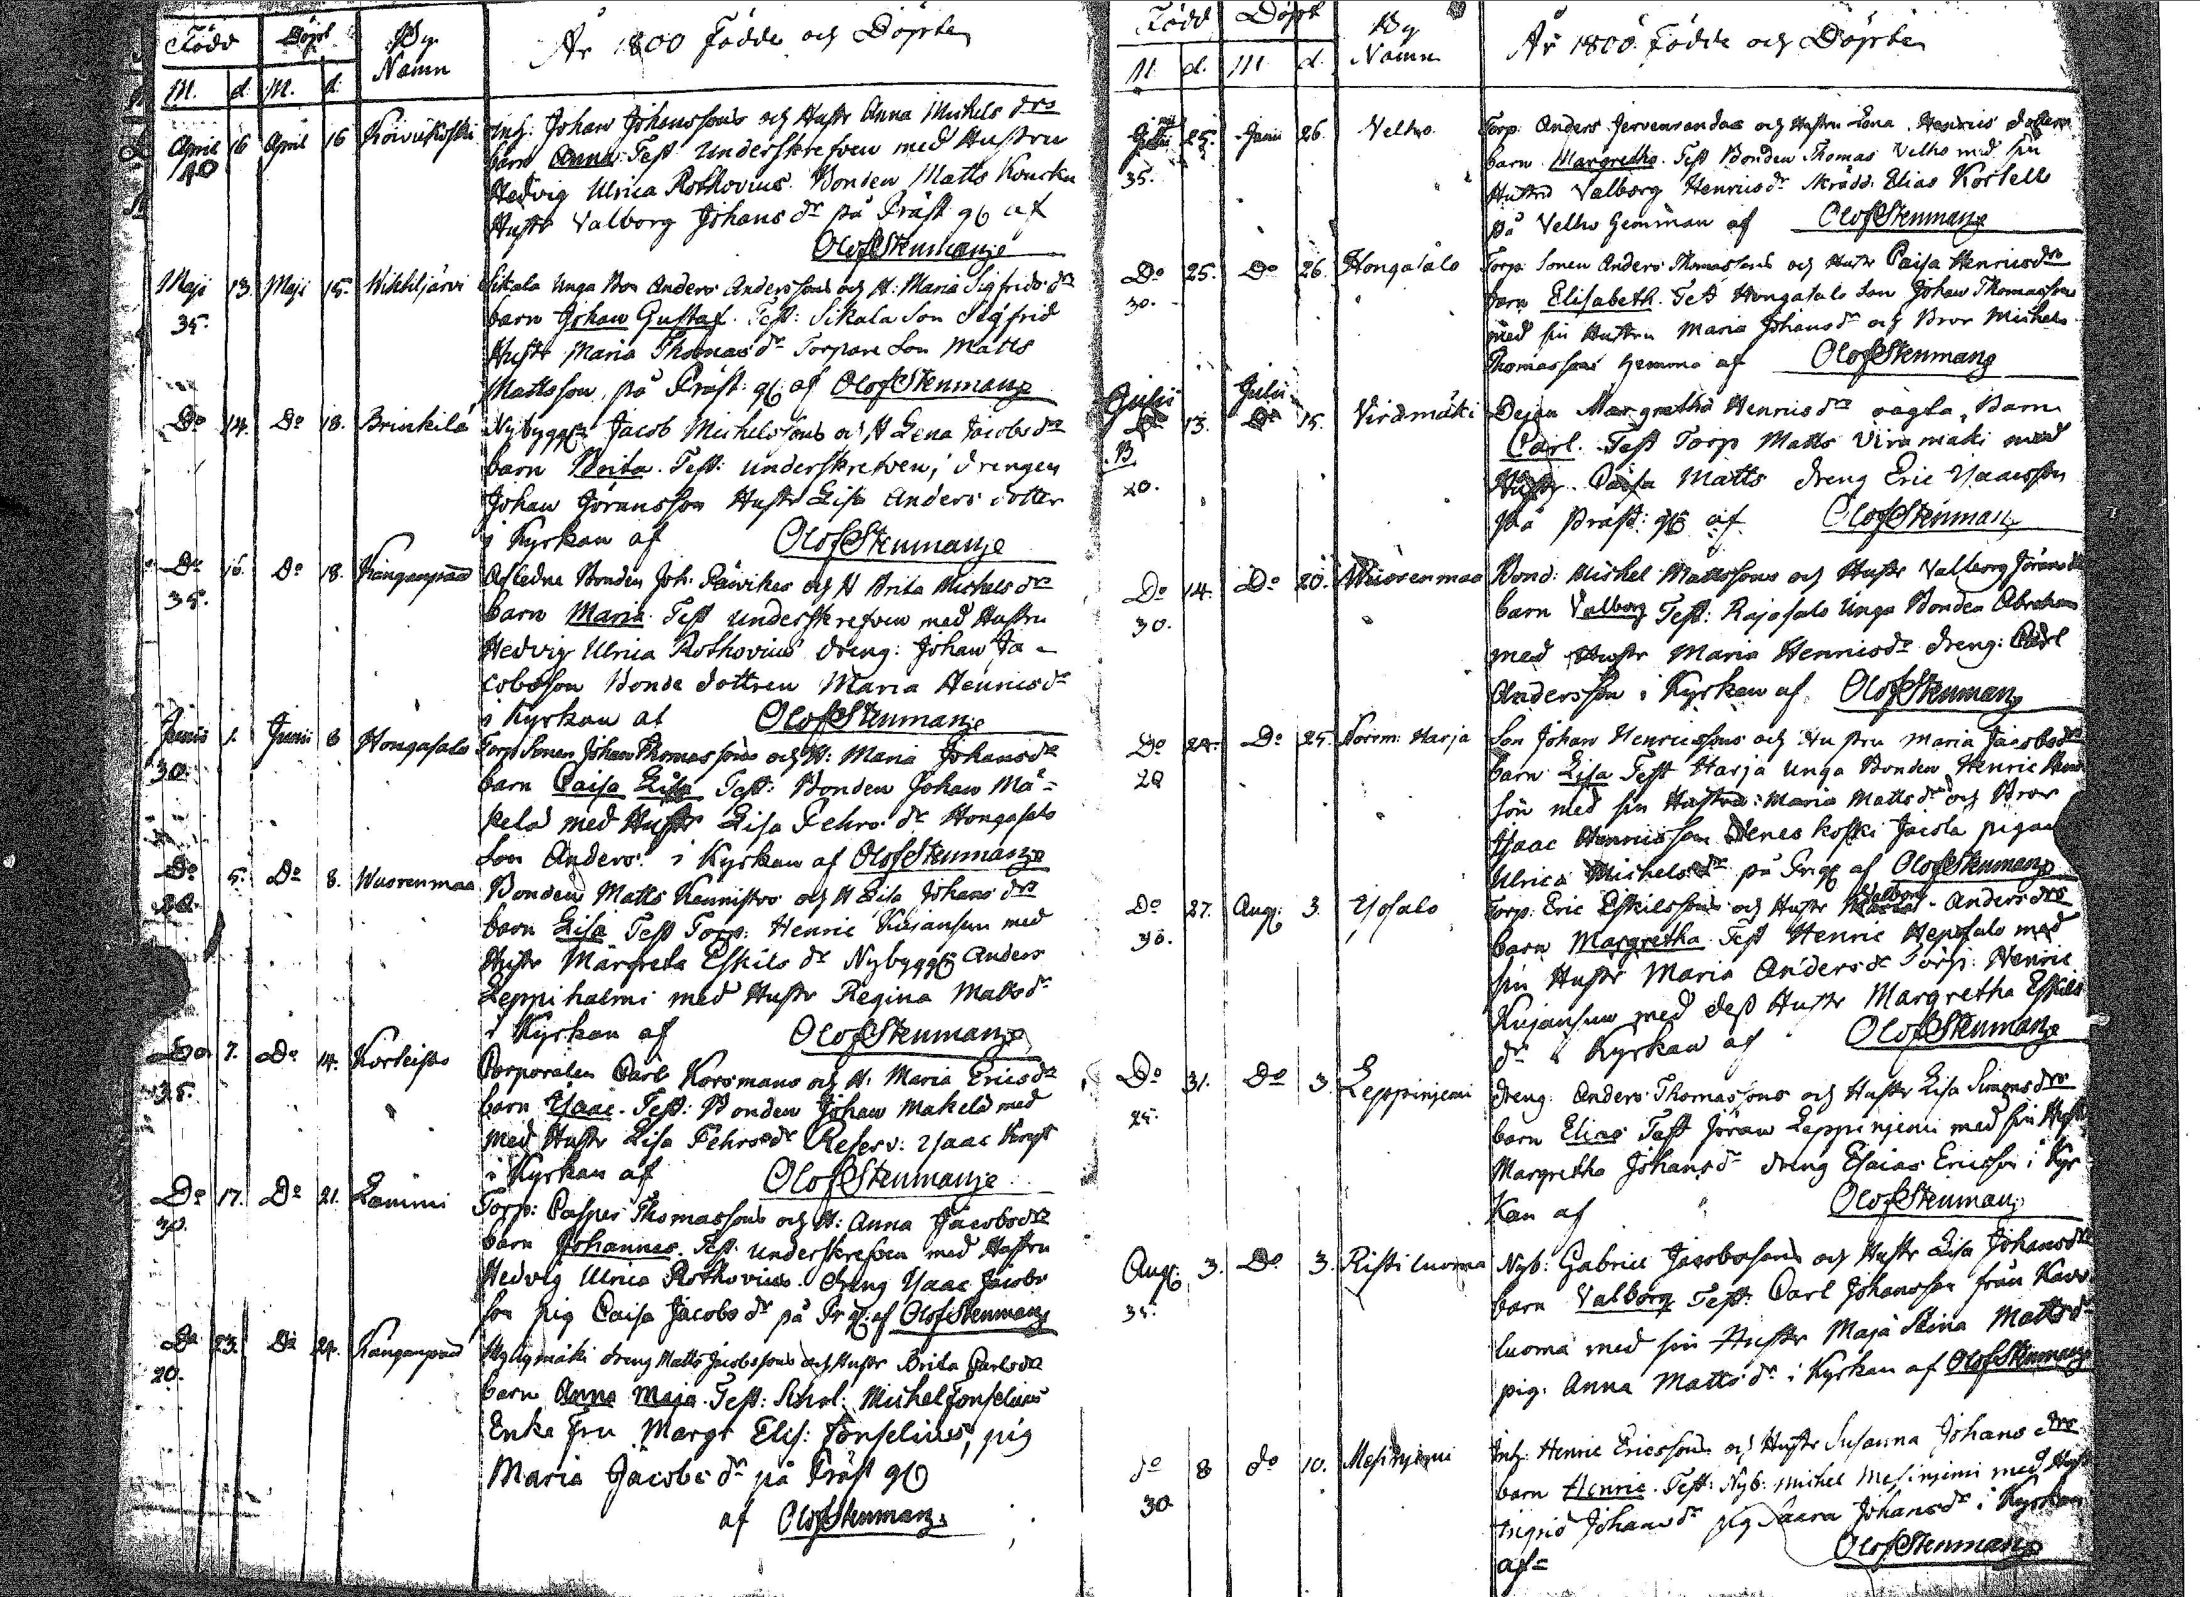 Född Döpt By Namn År 1800 Födde och Döpte
M. d. M. d.
April 16 April 16 Koivukoski Inh: Johan Johanssons och Hustr Anna Michels drs
40 barn Anna. Test Underskrefven med Hustru
Hedvig Ulrica Rothovius. Bonden Matts
Hustr Valborg Johans dr på Präst gl af
Olof Stenman
Maji 13. Maji 15. Kihlijärvi Sikala Unga Bon Anders Anderssons och H: Maria Sigfrids drs
35. barn Johan Gustaf. Test: Sikala Son Sigfrid
Hustr Maria Thomas dr Torpare Son Matts
Mattsson på Präst: gl: af Olof Stenman
Do 14. Do 18. Brinkilä Nybygg Jacob Michelssons och H Lena Jacobs drs
barn Brita. Test: underskrefven, drengen
Johan Jöransson Hustr Lisa Anders dotter
i Kyrkan af Olof Stenman
Do 16. Do 18. Kanganpää Afledne Bonden Joh: Päivikes och H Brita Michels drs
35. barn Maria Test underskrefven med Hustru
Hedvig Ulrica Rothovius dreng: Johan Ja-
cobsson Bonde dottren Maria Henrics dr
i Kyrkan af Olof Stenman
Junii 1. Junii 8 Hongasalo Torp Sonen Johan Thomassons och H: Maria Johans drs
30. barn Caisa Lisa Test: Bonden Johan Mä-
kelä med Hustr Lisa Fehrs dr Hongasalo
Son Anders i Kyrkan af Olof Stenman
Do 5. Do 8. Wuorenmaa Bonden Matts Kennistos och H Lisa Johans drs
barn Lisa Test Torp: Henric Kujansun med
Hustr Margreta Eskils dr Nybygg Anders
Leppihalmi med Hustr Regina Matts dr
i Kyrkan af Olof Stenman
Do 7. Do 14. Korteisto Corporalen Carl Korsmans och H: Maria Erics drs
35. barn Isaac. Test: Bonden Johan Makelä med
med Hustr Lisa Fehrs dr Reserv: Isaac
i Kyrkan af Olof Stenman
Do 17. Do 21. Lammi Torp: Casper Thomassons och H: Anna Jacobs drs
30. barn Johannes. Test underskrefven med Hustru
Hedvig Ulrica Rothovius. Dreng Isaac Jacobs
son pig Caisa Jacobs dr på Pr gl: af Olof Stenman
Do 23. Do 24. Kanganpää dreng Matts Jacobssons och Hustr Brita Carls drs
20. barn Anna Maja. Test: Michel Fonselius
Enka Fru Margr Elis: Fonselius, pig
Maria Jacobs dr på Präst gl
af Olof Stenman
Född Döpt By Namn År 1800. Födde och Döpte
M. d. M. d.
25. Junii 26. Velho Torp: Anders Jervensendas och Hustru Lena Henrics dotters
35. barn Margretha. Test Bonden Thomas Velho med sin
Hustru Valborg Henrics dr Skrädd: Elias Kortell
på Velho Hemman af Olof Stenman
Do 25. Do 26. Hongasalo Torp: Sonen Anders Thomassons och Hustr Caisa Henrics drs
30. barn Elisabeth. Test Hongasalo Son Johan Thomasson
med sin Hustru Maria Johans dr och Bror Michels
Thomassons hemma af Olof Stenman
Julii 13. Julii 15. Viramäki Dejan Margretha Henrics drs oägta Barn
20. Carl. Test Torp Matts Viramäki med
Hustr. Caisa Matts dreng Eric Isaacsson
på Präst: gl af Olof Stenman
Do 14. Do 20. Wuorenmaa Bond: Michel Mattssons och Hustr Valborg Jörans drs
30. barn Valborg Test: Rajasalo Unga Bonden Abraham
med Hustr Maria Henrics dr dreng: Carl
Andersson i Kyrkan af Olof Stenman
Do 24. Do 25. Norrm: Harja Son Johan Henricssons och Hustru Maria Jacobs drs
20 barn Lisa Test Harja Unga Bonden Henric
son med sin Hustru: Maria Matts dr och Bror
Isaac Henricsson Jacola pigan
Ulrica Michels dr på Pr. gl af Olof Stenman
Do 27. Aug: 3. Isosalo Torp: Eric Eskilssons och Hustr Valborg Anders drs
30. barn Margretha Test Henric Hepsalo med
sin Hustr Maria Anders dr Torp: Henric
Kujansun med dess Hustr Margretha Eskils
dr i Kyrkan af Olof Stenman
Do 31. Do 3. Leppinjemi dreng. Anders Thomassons och Hustr Lisa Simons drs
25. barn Elias Test Jöran Leppinjemi med sin Hust
Margretha Johans dr dreng Esaias Ericsson i Kyr
kan af Olof Stenman
Aug: 3. Do 3. Ristiluoma Nyb: Gabriel Jacobssons och Hustr Lisa Johans drs
35. barn Valborg Test: Carl Johansson från
luoma med sin Hustr Maja Stina Matts dr
pig: Anna Matts dr i Kyrkan af Olof Stenman
do 8 do 10. Mesinjemi Inh: Henric Ericssons och Hustr Susanna Johans drs
30 barn Henric. Test: Nyb: Michel Mesinjemi med Hust
Ingrid Johans dr pig Saara Johans dr i Kyrkan
af Olof Stenman